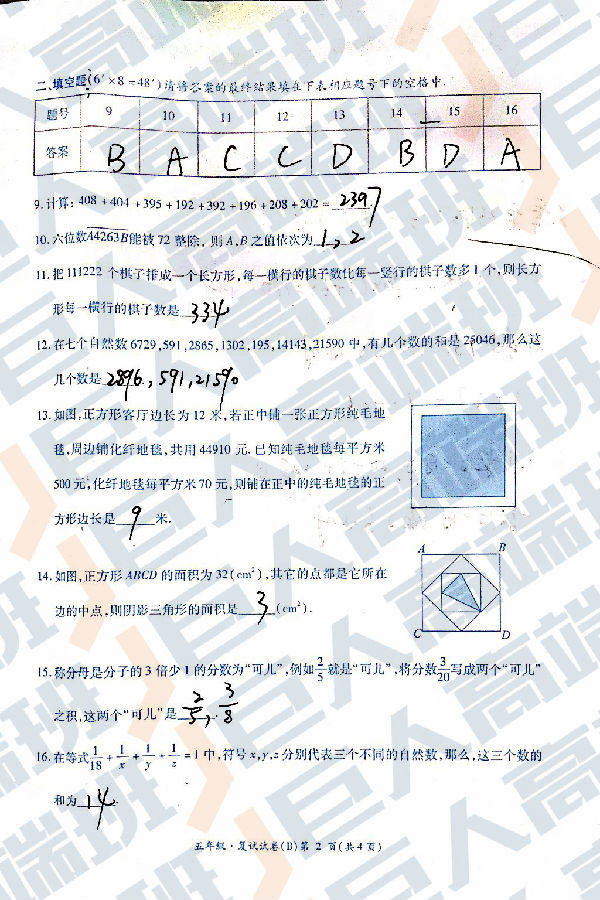 二、填空题(6′×8=48′)请将答案的最终结果填在下表相应题号下的空格中.
题号 9 10 11 12 13 14 15 16
答案 B A C C D B D A
9.计算:408+404+395+192+392+196+208+202=2397
10.六位数44263B能被72整除,则A,B之值依次为1,2
11.把111222个棋子排成一个长方形,每一横行的棋子数比每一竖行的棋子数多1个,则长方
形每一横行的棋子数是334
12.在七个自然数6729,591,2865,1302,195,14143,21590中,有几个数的和是25046,那么这
几个数是2896,591,21590
13.如图,正方形客厅边长为12米,若正中铺一张正方形纯毛地
毯,周边铺化纤地毯,共用44910元.已知纯毛地毯每平方米
500元,化纤地毯每平方米70元,则铺在正中的纯毛地毯的正
方形边长是9米.
A B
14.如图,正方形ABCD的面积为32(cm²),其它的点都是它所在
边的中点,则阴影三角形的面积是3(cm²).
C D
15.称分母是分子的3倍少1的分数为“可儿”,例如2/5就是“可儿”,将分数3/20写成两个“可儿”
之积,这两个“可儿”是2/5,3/8
16.在等式1/18+1/x+1/y+1/z=1中,符号x,y,z分别代表三个不同的自然数,那么,这三个数的
和为14.
五年级·复试试卷(B)第2页(共4页)
巨人高端班